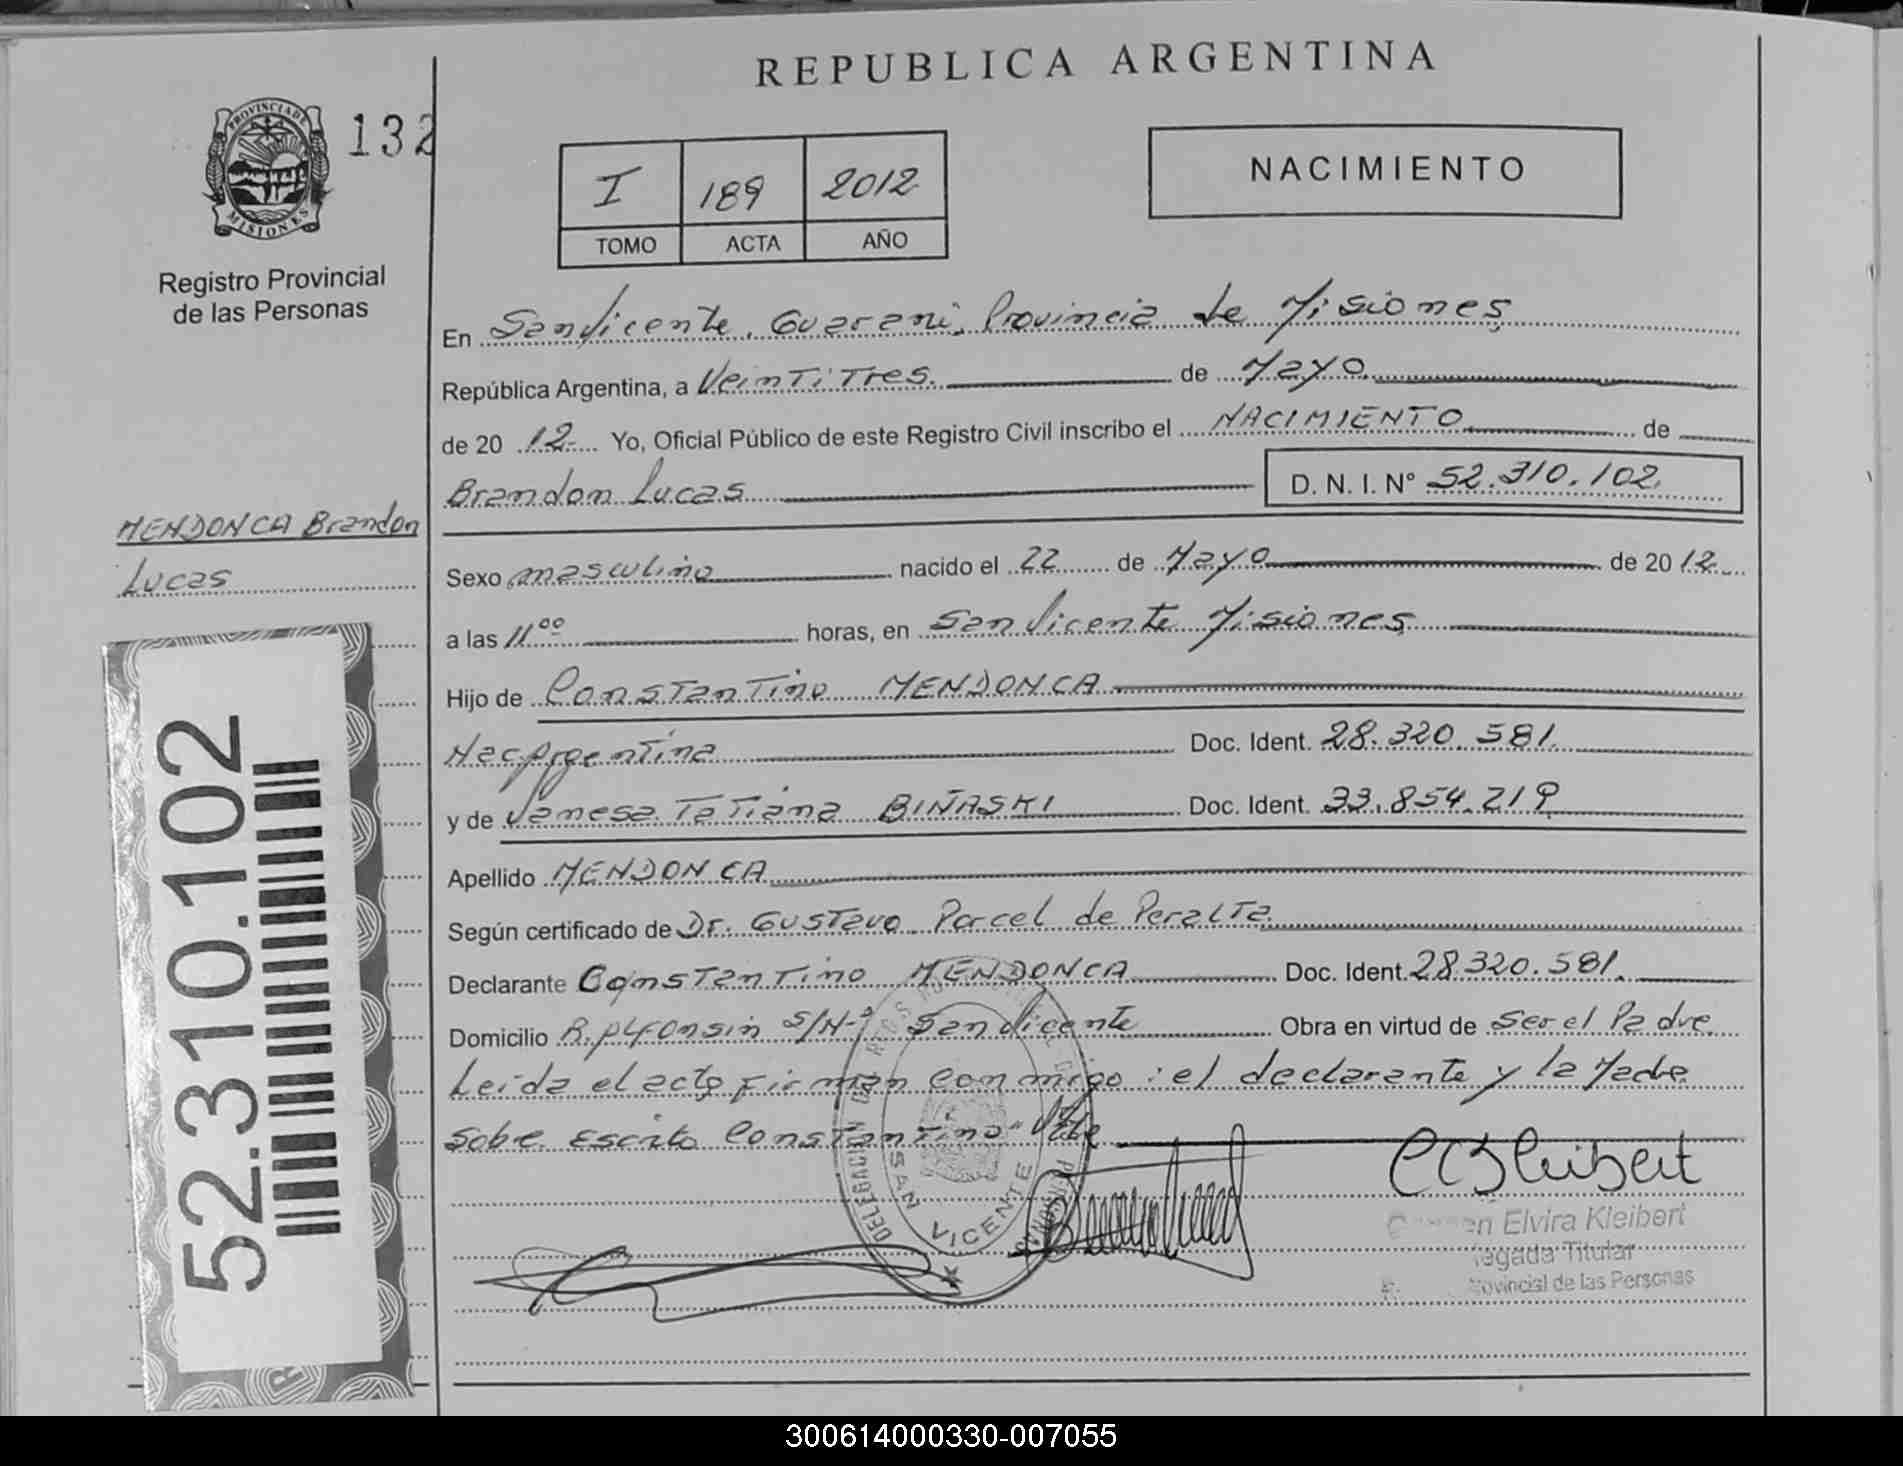 REPUBLICA ARGENTINA
PROVINCIA DE
MISIONES
132
Registro Provincial
de las Personas
I 189 2012
TOMO ACTA AÑO
NACIMIENTO
En San Vicente, Guarani, Provincia de Misiones
República Argentina, a Veintitres. de Mayo
de 20 12. Yo, Oficial Público de este Registro Civil inscribo el NACIMIENTO de
Brandon Lucas D. N. I. N° 52.310.102.
MENDONCA Brandon
Lucas
Sexo masculino nacido el 22 de Mayo de 20 12.
a las 11⁰⁰ horas, en San Vicente Misiones
Hijo de Constantino MENDONCA
Nac Argentina Doc. Ident. 28.320.581.
y de Vanesa Tatiana BIÑASKI Doc. Ident. 33.854.219
Apellido MENDONCA
Según certificado de Dr. Gustavo Porcel de Peralta
Declarante Constantino MENDONCA Doc. Ident. 28.320.581.
Domicilio R. Alfonsin S/N-° San Vicente Obra en virtud de Ser el Padre
Leida el acta Firman Conmigo: el declarante y la Madre
Sobre Escrito Constantino" Vale
52.310.102
DELEGACION
SAN VICENTE
Elvira Kleibert
Titular
Provincial de las Personas
300614000330-007055